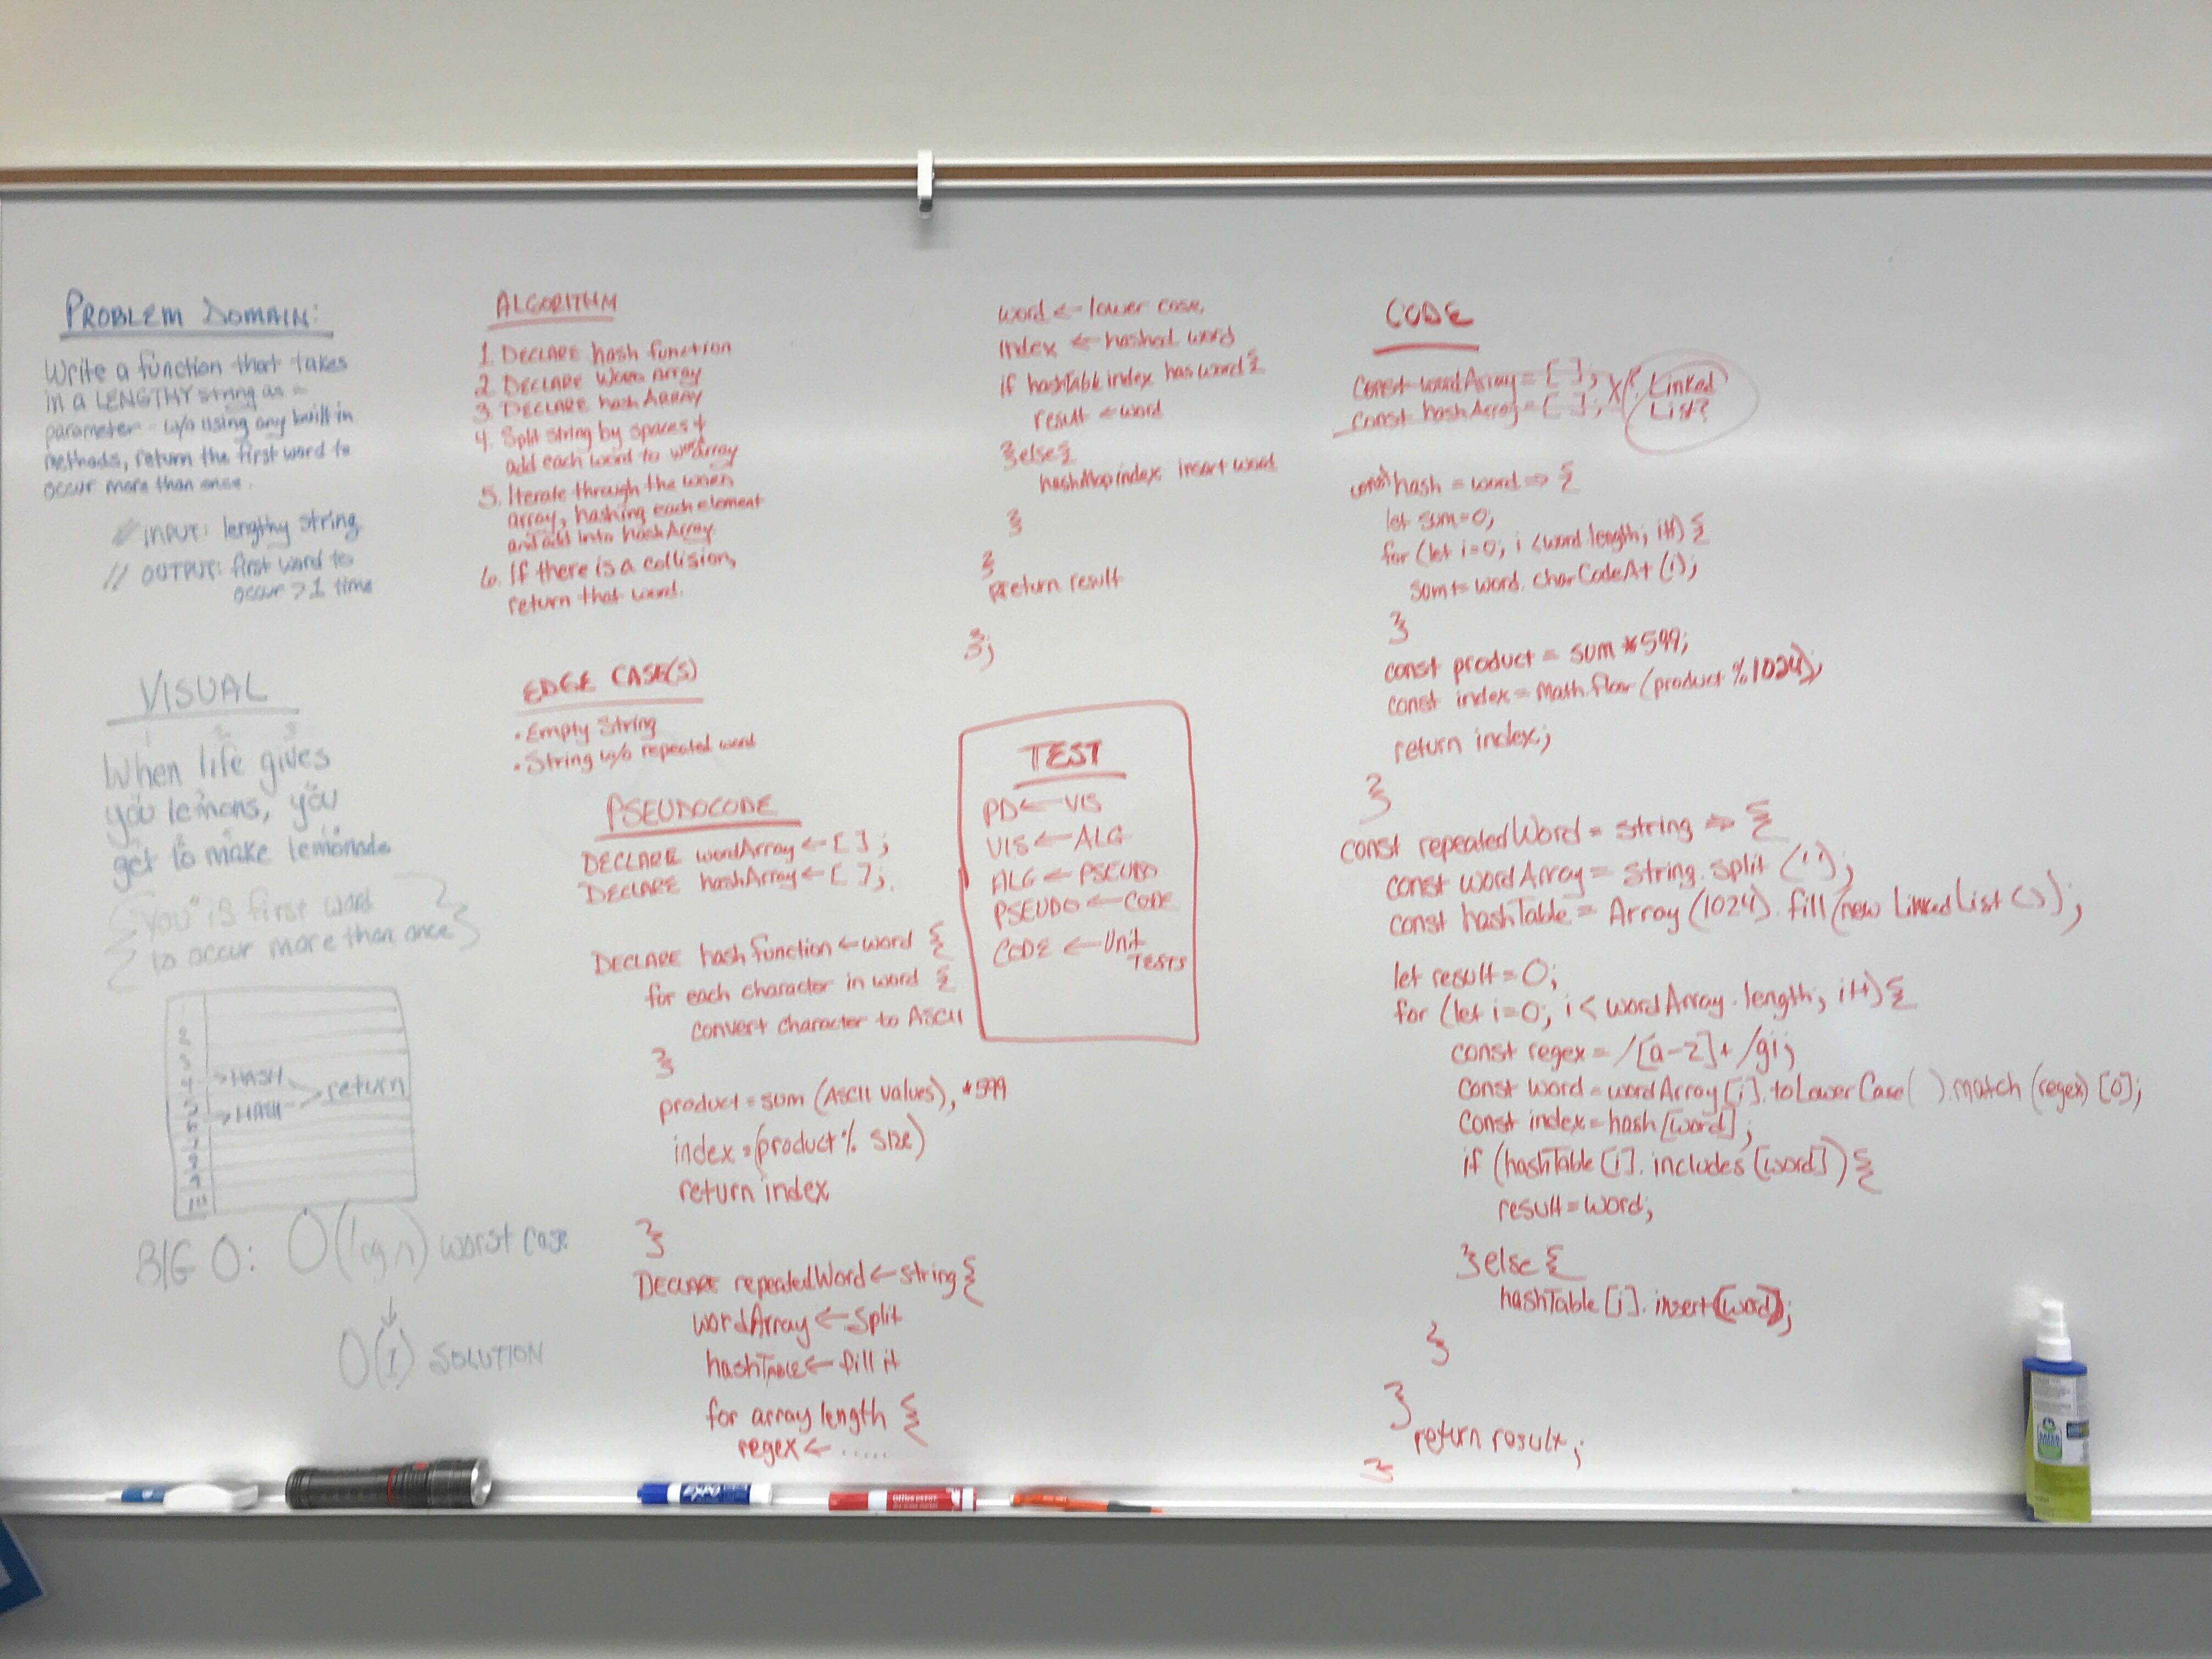 PROBLEM DOMAIN:
Write a function that takes
in a LENGTHY string as a
parameter - w/o using any built in
methods, return the first word to
occur more than once.
// INPUT: lengthy string
// OUTPUT: first word to
occur > 1 time
VISUAL
1 2 3
When life gives
you lemons, you
get to make lemonade
{ "you" is first word
to occur more than once }
1
2
3
4 → HASH
return
5 → HASH
6
7
8
9
10
BIG O: O(log n) worst case
↓
O(1) SOLUTION
ALGORITHM
1. DECLARE hash function
2. DECLARE Word Array
3. DECLARE hashARRAY
4. Split string by spaces &
add each word to wordArray
5. Iterate through the
array, hashing each element
and add into hashArray.
6. If there is a collision,
return that word.
EDGE CASE(S)
• Empty String
• String w/o repeated word
PSEUDOCODE
DECLARE wordArray ← [ ];
DECLARE hashArray ← [ ];
DECLARE hash function ← word {
for each character in word {
convert character to ASCII
}
product = sum (ASCII values), *599
index = (product % size)
return index
}
DECLARE repeatedWord ← string {
wordArray ← split
hashTABLE ← fill it
for array length {
regex ← .....
word ← lower case,
index ← hashed word
if hashTable index has word {
result ← word
} else {
hashMap index insert word
}
}
return result
};
TEST
PD ← VIS
VIS ← ALG
ALG ← PSEUDO
PSEUDO ← CODE
CODE ← Unit
TESTS
CODE
const wordArray = [ ];
const hashArray = [ ];
X? Linked
List?
const hash = word => {
let sum = 0;
for (let i = 0; i < word.length; i++) {
sum += word.charCodeAt(i);
}
const product = sum * 599;
const index = Math.floor(product % 1024);
return index;
}
const repeatedWord = string => {
const wordArray = string.split(' ');
const hashTable = Array(1024).fill(new LinkedList());
let result = 0;
for (let i = 0; i < wordArray.length; i++) {
const regex = /[a-z]+/gi;
const word = wordArray[i].toLowerCase().match(regex)[0];
const index = hash[word];
if (hashTable[i].includes[word]) {
result = word;
} else {
hashTable[i].insert(word);
}
}
return result;
}
EXPO